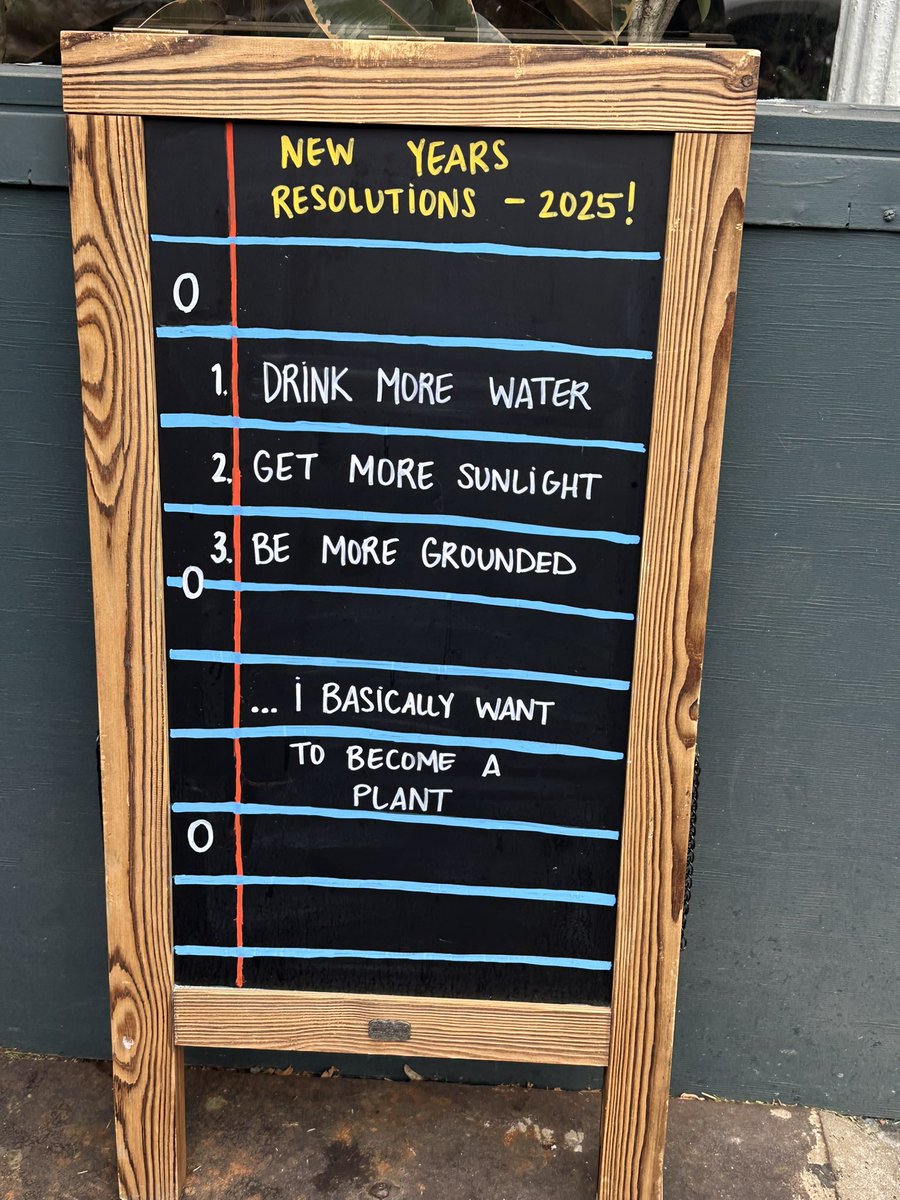 NEW YEARS
RESOLUTIONS - 2025!
1. DRINK MORE WATER
2. GET MORE SUNLIGHT
3. BE MORE GROUNDED
... i BASICALLY WANT
TO BECOME A
PLANT